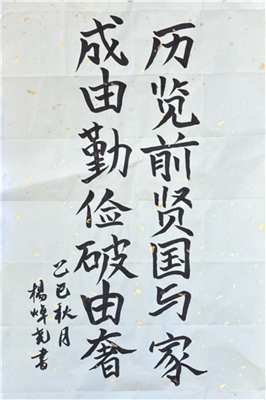 历览前贤国与家
成由勤俭破由奢
乙巳秋月
楊焯尧書